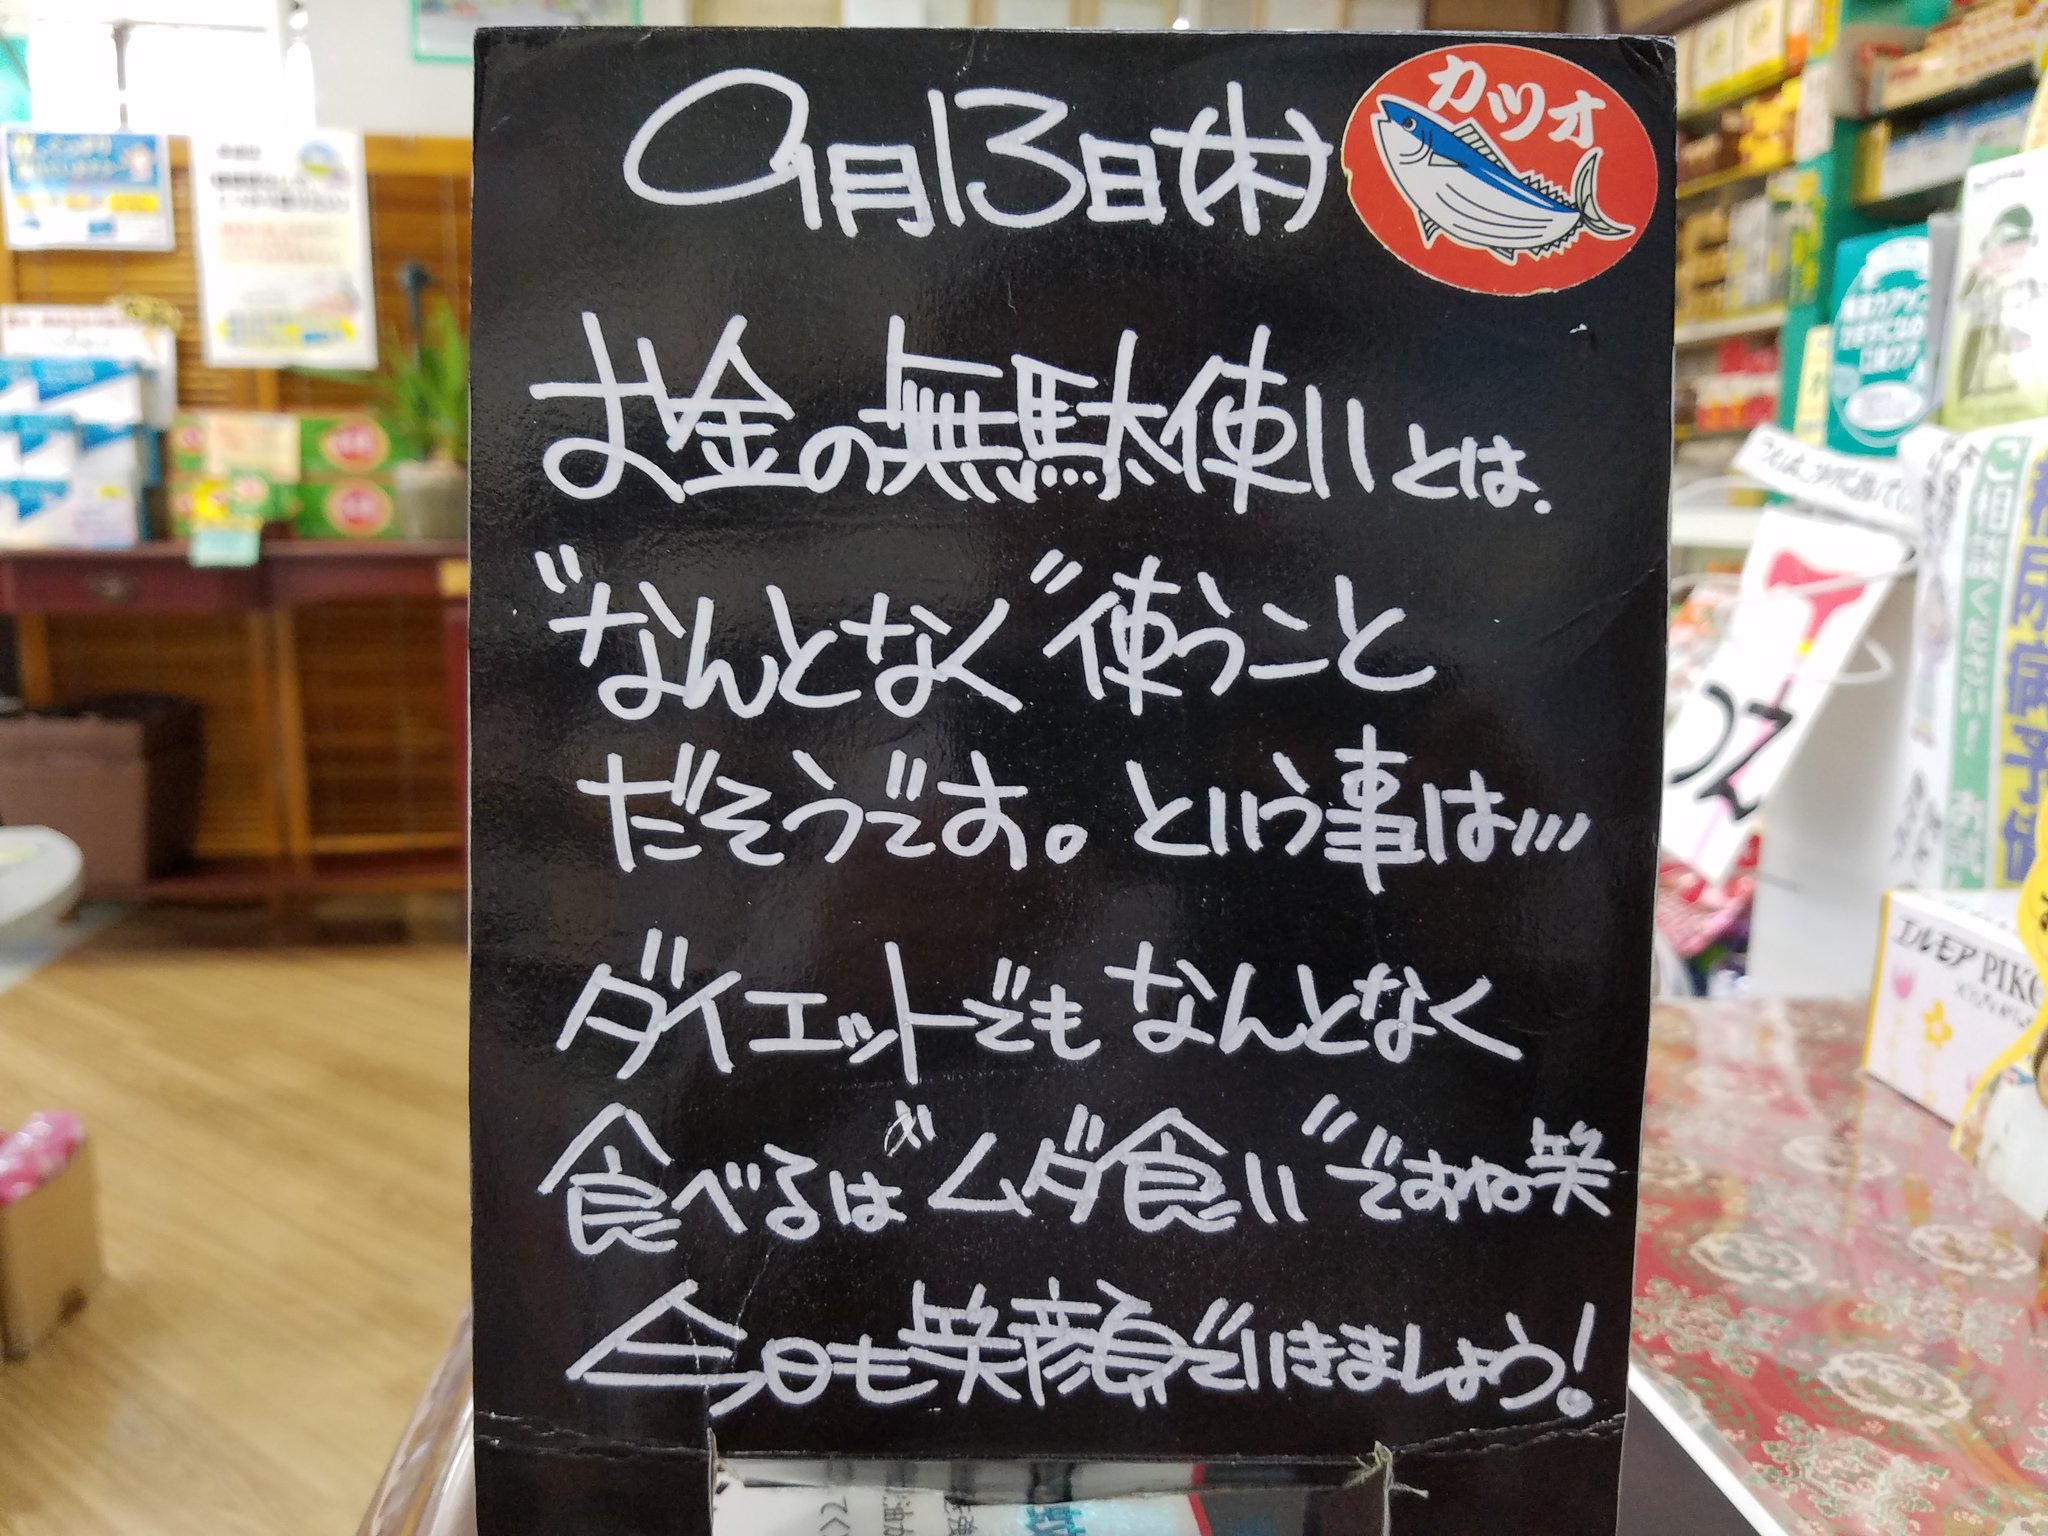 9月13日(木)
カツオ
お金の無駄使いとは、
"なんとなく"使うこと
だそうです。という事は…
ダイエットでもなんとなく
食べるは"ムダ食い"ですね笑
今日も笑顔でいきましょう!
エルモア PIKO